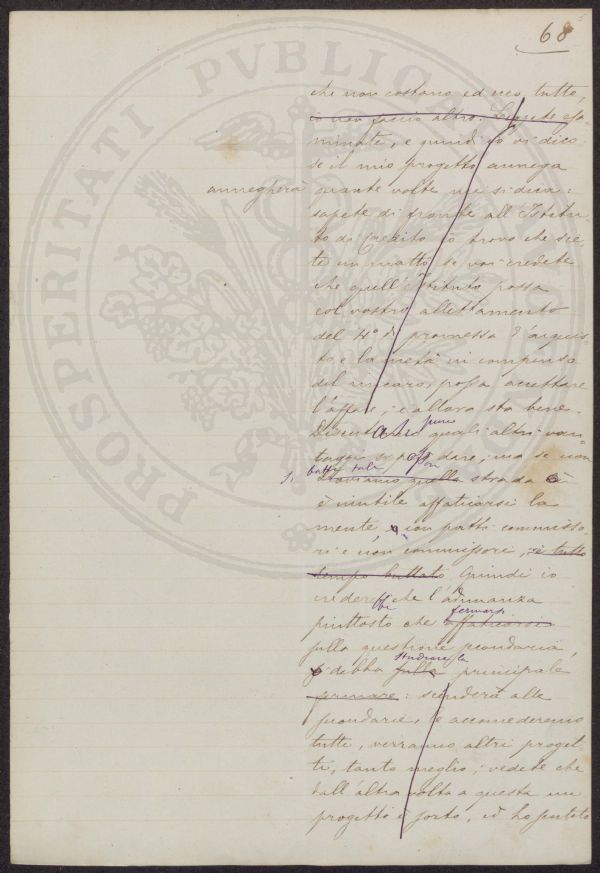 68
PROSPERITATI PVBLICAE
che non costano ed ecco tutto,
io non faccio altro. Legnete esa
minate, e quindi io vi dico
se il mio progetto annega
annegherà
quante volte me si deve:
sapete di fronte all'Istitu
to di Credito io trovo che sie
te un matto se voi credete
che quell'Istituto possa
col vostro allettamento
del 4º di promessa d'acquis
to e la metà in compenso
del rincaro, possa accettare
l'affare; e allora sta bene.
pure
quali altri van
taggi si dare; ma se non
batte tale
quella strada è
è inutile affaticarsi la
mente, con patti commisso
ri e non commissori, è tutto
tempo buttato. Quindi io
crederei che l'adunanza
piuttosto che affaticarsi
fermarsi
sulla questione secondaria,
studiare la
debba sulla principale
fermare: scenderà alle
secondarie, accomoderemo
tutte, verranno altri proget
ti, tanto meglio; vedete che
dall'altra volta a questa un
progetto è sorto, ed ho sentito